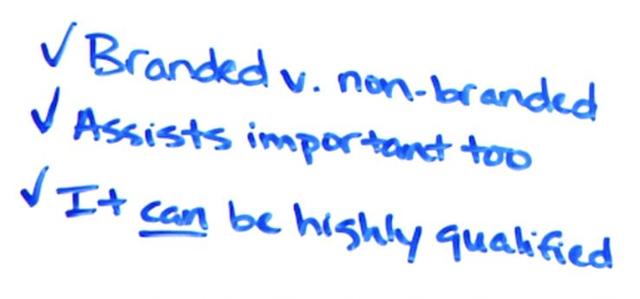 ✓ Branded v. non-branded
✓ Assists important too
✓ It can be highly qualified